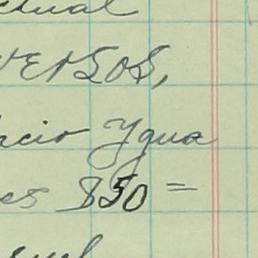 ctual
VERSOS,
acio Ygua
es 850 =